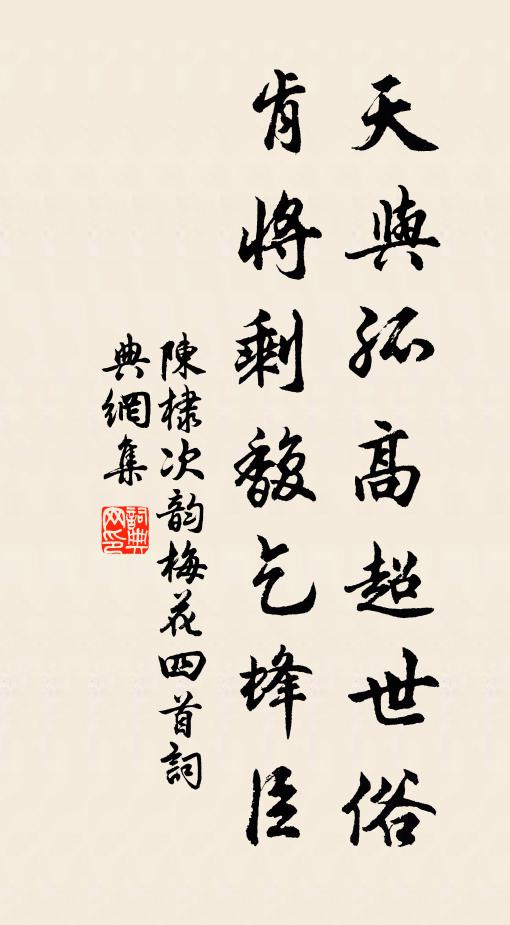 天與孤高超世俗
肯將剩馥乞蜂臣
陳棣次韵梅花四首詞
典網集
詞典
网印